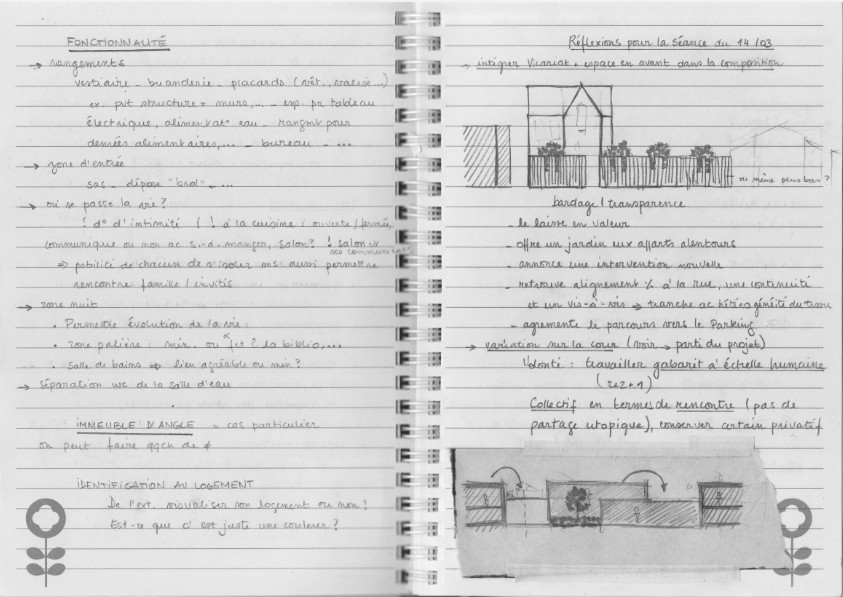 FONCTIONNALITÉ
→ rangements
vestiaire _ buanderie _ placards (vêt., valise...)
ex. pvt structure + murs,... _ esp. pr tableau
électrique, alimentat° eau _ rangmt pour
denrées alimentaires,... _ bureau _ ...
→ zone d'entrée
sas _ dépose "brol", ...
→ où se passe la vie ?
! d'intimité ( ! à la cuisine : ouverte/fermée,
communique ou non ac s.-à-manger, salon? ! salon
⇒ pobilité de chacun de s'isoler ms aussi permettre
rencontre famille / invités
→ zone nuit
• Permettre évolution de la vie
• zone palière : min. ou la biblio,...
• Salle de bains lieu agréable ou min ?
→ séparation wc de la salle d'eau
IMMEUBLE D'ANGLE = cas particulier
on peut faire qqch de ≠
IDENTIFICATION AU LOGEMENT
De l'ext. visualiser son logement ou non ?
Est-ce que c'est juste une couleur ?
Réflexions pour la Séance du 14/03
→ intégrer Vicariat + espace en avant dans la composition
ou même plus bas ?
bardage / transparence
- le laisse en valeur
- offre un jardin aux apparts alentours
- annonce une intervention nouvelle
- retrouve alignement % à la rue, une continuité
et un vis-à-vis → tranche ac hétérogénéité du tissu
- agrémente le parcours vers le Parking
→ variation sur la cour (voir → parti du projet)
Volonté : travailler gabarit à échelle humaine
(rez+1)
Collectif en termes de rencontre (pas de
partage utopique), conserver certain privatif